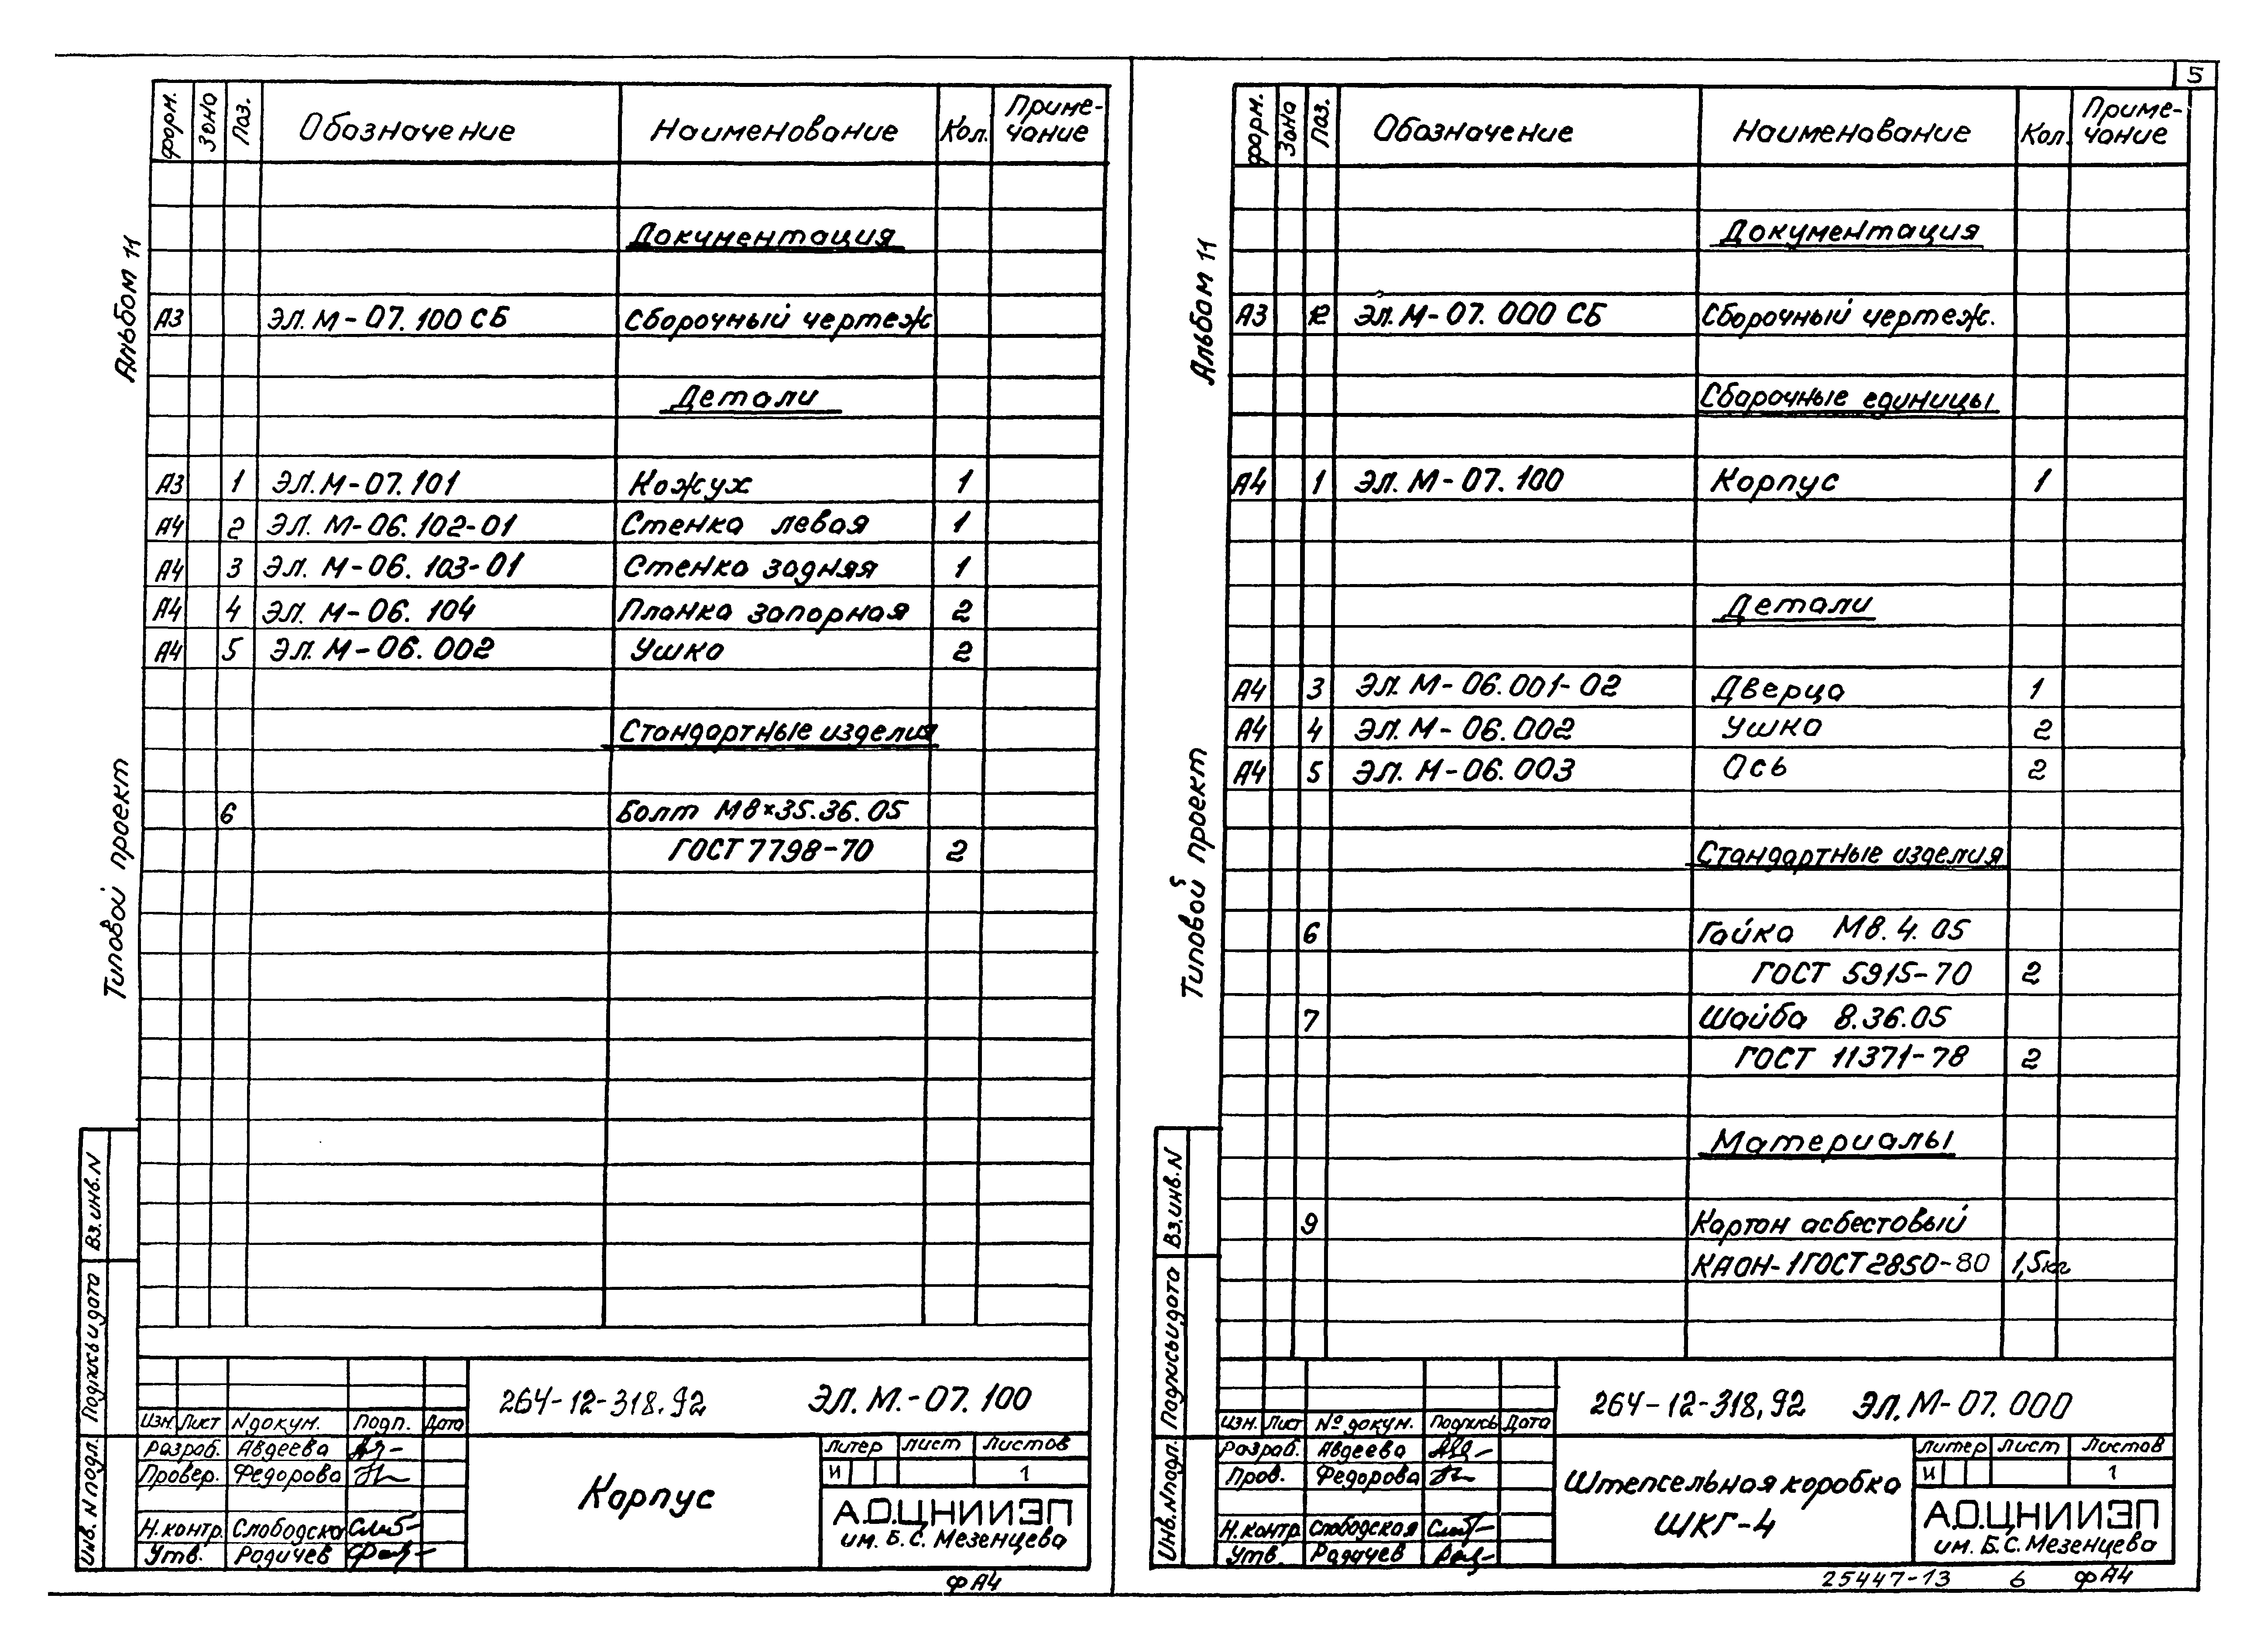 5
форм. Зона Поз. Обозначение Наименование Кол. Приме-
чание
Документация
А3 ЭЛ.М-07.100 СБ Сборочный чертеж
Детали
А3 1 ЭЛ.М-07.101 Кожух 1
А4 2 ЭЛ. М-06.102-01 Стенка левая 1
А4 3 ЭЛ. М-06.103-01 Стенка задняя 1
А4 4 ЭЛ. М-06.104 Планка запорная 2
А4 5 ЭЛ.М-06.002 Ушко 2
Стандартные изделия
6 Болт М8×35.36.05
ГОСТ 7798-70 2
Альбом 11
Типовой проект
Вз.инв.N
Подпись и дата
Инв. N подл.
264-12-318.92 ЭЛ.М.-07.100
Изм Лист N докум. Подп. Дата
Разраб. Авдеева
Провер. Федорова
Н.контр. Слободска
Утв. Радичев
Корпус
литер лист листов
И 1
А.О.ЦНИИЭП
им. Б.С. Мезенцева
ФА4
форм. Зона Поз. Обозначение Наименование Кол. Приме-
чание
Документация
А3 12 ЭЛ.М-07.000 СБ Сборочный чертеж.
Сборочные единицы
А4 1 ЭЛ.М-07.100 Корпус 1
Детали
А4 3 ЭЛ.М-06.001-02 Дверца 1
А4 4 ЭЛ.М-06.002 Ушко 2
А4 5 ЭЛ.М-06.003 Ось 2
Стандартные изделия
6 Гайка М8.4.05
ГОСТ 5915-70 2
7 Шайба 8.36.05
ГОСТ 11371-78 2
Материалы
9 Картон асбестовый
КАОН-1 ГОСТ 2850-80 1,5кг
Альбом 11
Типовой проект
Вз.инв.N
Подпись и дата
Инв.N подл.
264-12-318,92 ЭЛ.М-07.000
Изм. Лист № докум. Подпись Дата
Разраб. Авдеева
Пров. Федорова
Н.контр Слободская
Утв. Радичев
Штепсельная коробка
ШКГ-4
Литер Лист Листов
И 1
А.О.ЦНИИЭП
им. Б.С.Мезенцева
25447-13 6 ФА4